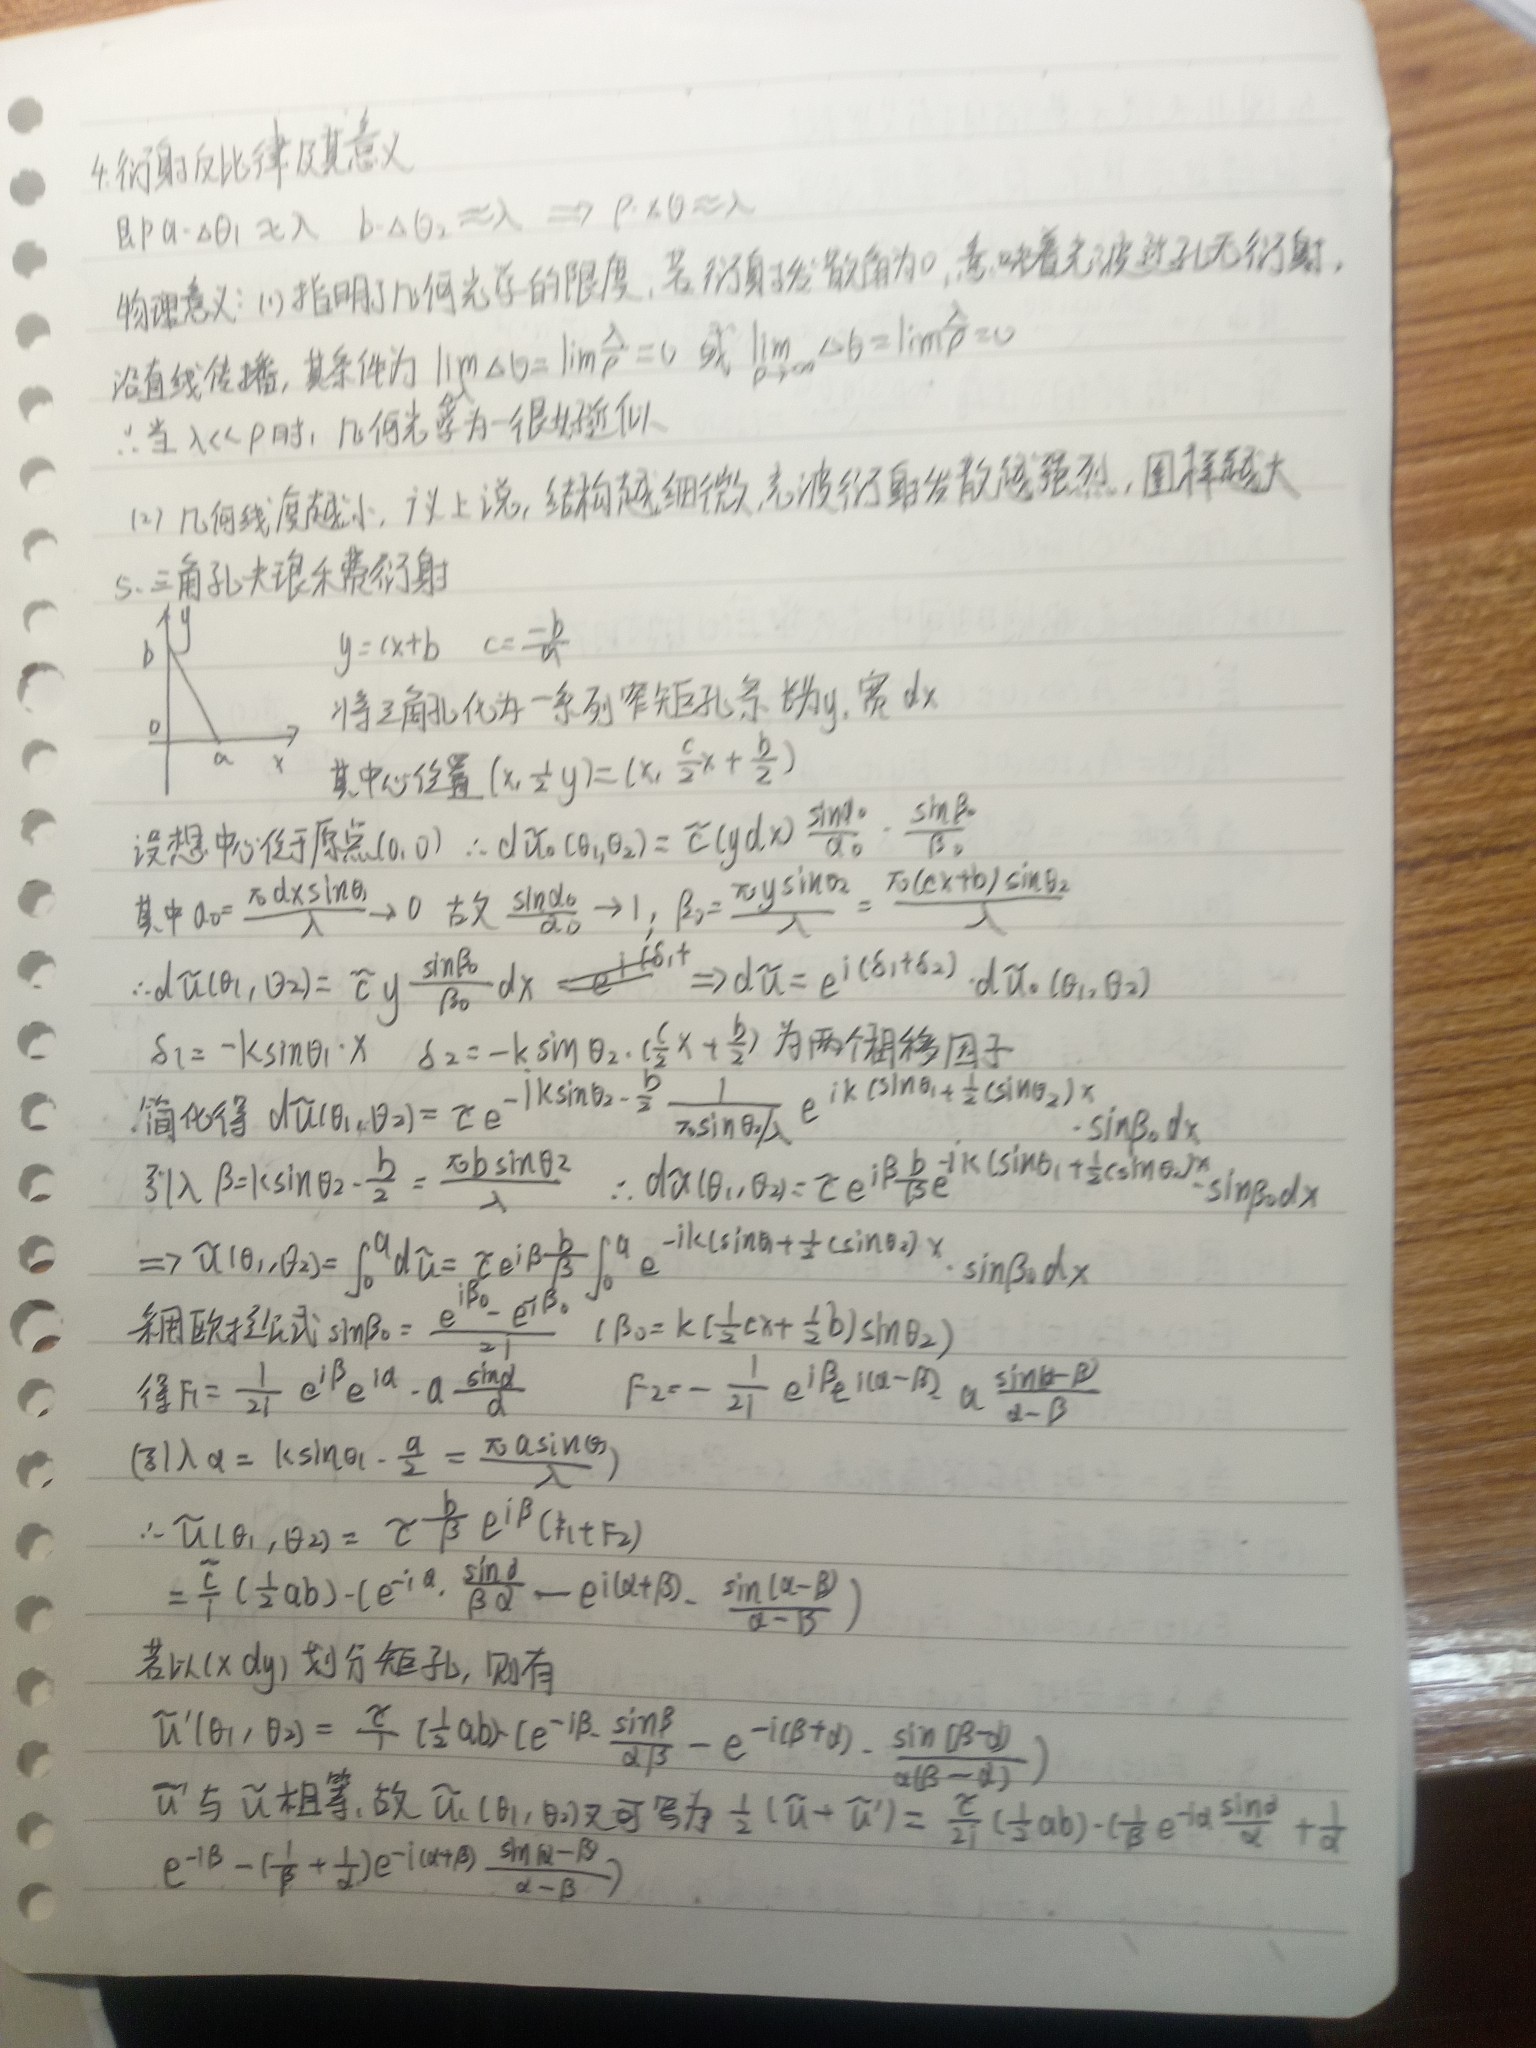 4.衍射反比律及其意义
即 a·Δθ₁≈λ b·Δθ₂≈λ ⇒ ρ·Δθ≈λ
物理意义:(1)指明了几何光学的限度,若衍射发散角为0,意味着光波过孔无衍射,
沿直线传播,其条件为 lim_λ Δθ=lim λ/ρ=0 或 lim_{ρ→∞} Δθ=lim λ/ρ=0
∴当 λ<<ρ时,几何光学为一很好近似
(2)几何线度越小,议上说,结构越细微,光波衍射发散越强烈,图样越大
5.三角孔夫琅禾费衍射
y b 0 a x
y=cx+b c=-b/a
将三角孔化为一系列窄矩孔条 长为y,宽dx
其中心位置(x,½y)=(x, c/2 x + b/2)
设想中心位于原点(0,0) ∴dũ₀(θ₁,θ₂)=c̃(ydx) sinα₀/α₀ · sinβ₀/β₀
其中α₀=πdxsinθ₁/λ→0 故 sinα₀/α₀→1, β₀=πysinθ₂/λ=π(cx+b)sinθ₂/λ
∴dũ(θ₁,θ₂)=c̃y sinβ₀/β₀ dx ⇒dũ=e^{i(δ₁+δ₂)}·dũ₀(θ₁,θ₂)
δ₁=-ksinθ₁·x δ₂=-ksinθ₂·(c/2 x+b/2) 为两个相移因子
简化得 dũ(θ₁,θ₂)=c̃e^{-iksinθ₂·b/2} 1/(πsinθ₂/λ) e^{ik(sinθ₁+½csinθ₂)x}·sinβ₀dx
引入β=ksinθ₂·b/2=πbsinθ₂/λ ∴dũ(θ₁,θ₂)=c̃e^{iβ} b/β e^{-ik(sinθ₁+½csinθ₂)x}·sinβ₀dx
⇒ũ(θ₁,θ₂)=∫₀ᵃdũ=c̃e^{iβ} b/β ∫₀ᵃ e^{-ik(sinθ₁+½csinθ₂)x}·sinβ₀dx
采用欧拉公式 sinβ₀=(e^{iβ₀}-e^{-iβ₀})/2i (β₀=k(½cx+½b)sinθ₂)
得F₁=1/2i e^{iβ}e^{iα}·a sinα/α F₂=-1/2i e^{iβ}e^{i(α-β)}·a sin(α-β)/(α-β)
(引入α=ksinθ₁·a/2=πasinθ₁/λ)
∴ũ(θ₁,θ₂)=c̃ b/β e^{iβ}(F₁+F₂)
=c̃/i (½ab)·(e^{-iα}·sinα/βα-e^{i(α+β)}·sin(α-β)/(α-β))
若以(xdy)划分矩孔,则有
ũ'(θ₁,θ₂)=c̃/i (½ab)·(e^{-iβ}·sinβ/αβ-e^{-i(β+α)}·sin(β-α)/α(β-α))
ũ'与ũ相等,故ũ(θ₁,θ₂)又可写为½(ũ+ũ')=c̃/2i (½ab)·(1/β e^{-iα} sinα/α+1/α
e^{-iβ}-(1/β+1/α)e^{-i(α+β)} sin(α-β)/(α-β))